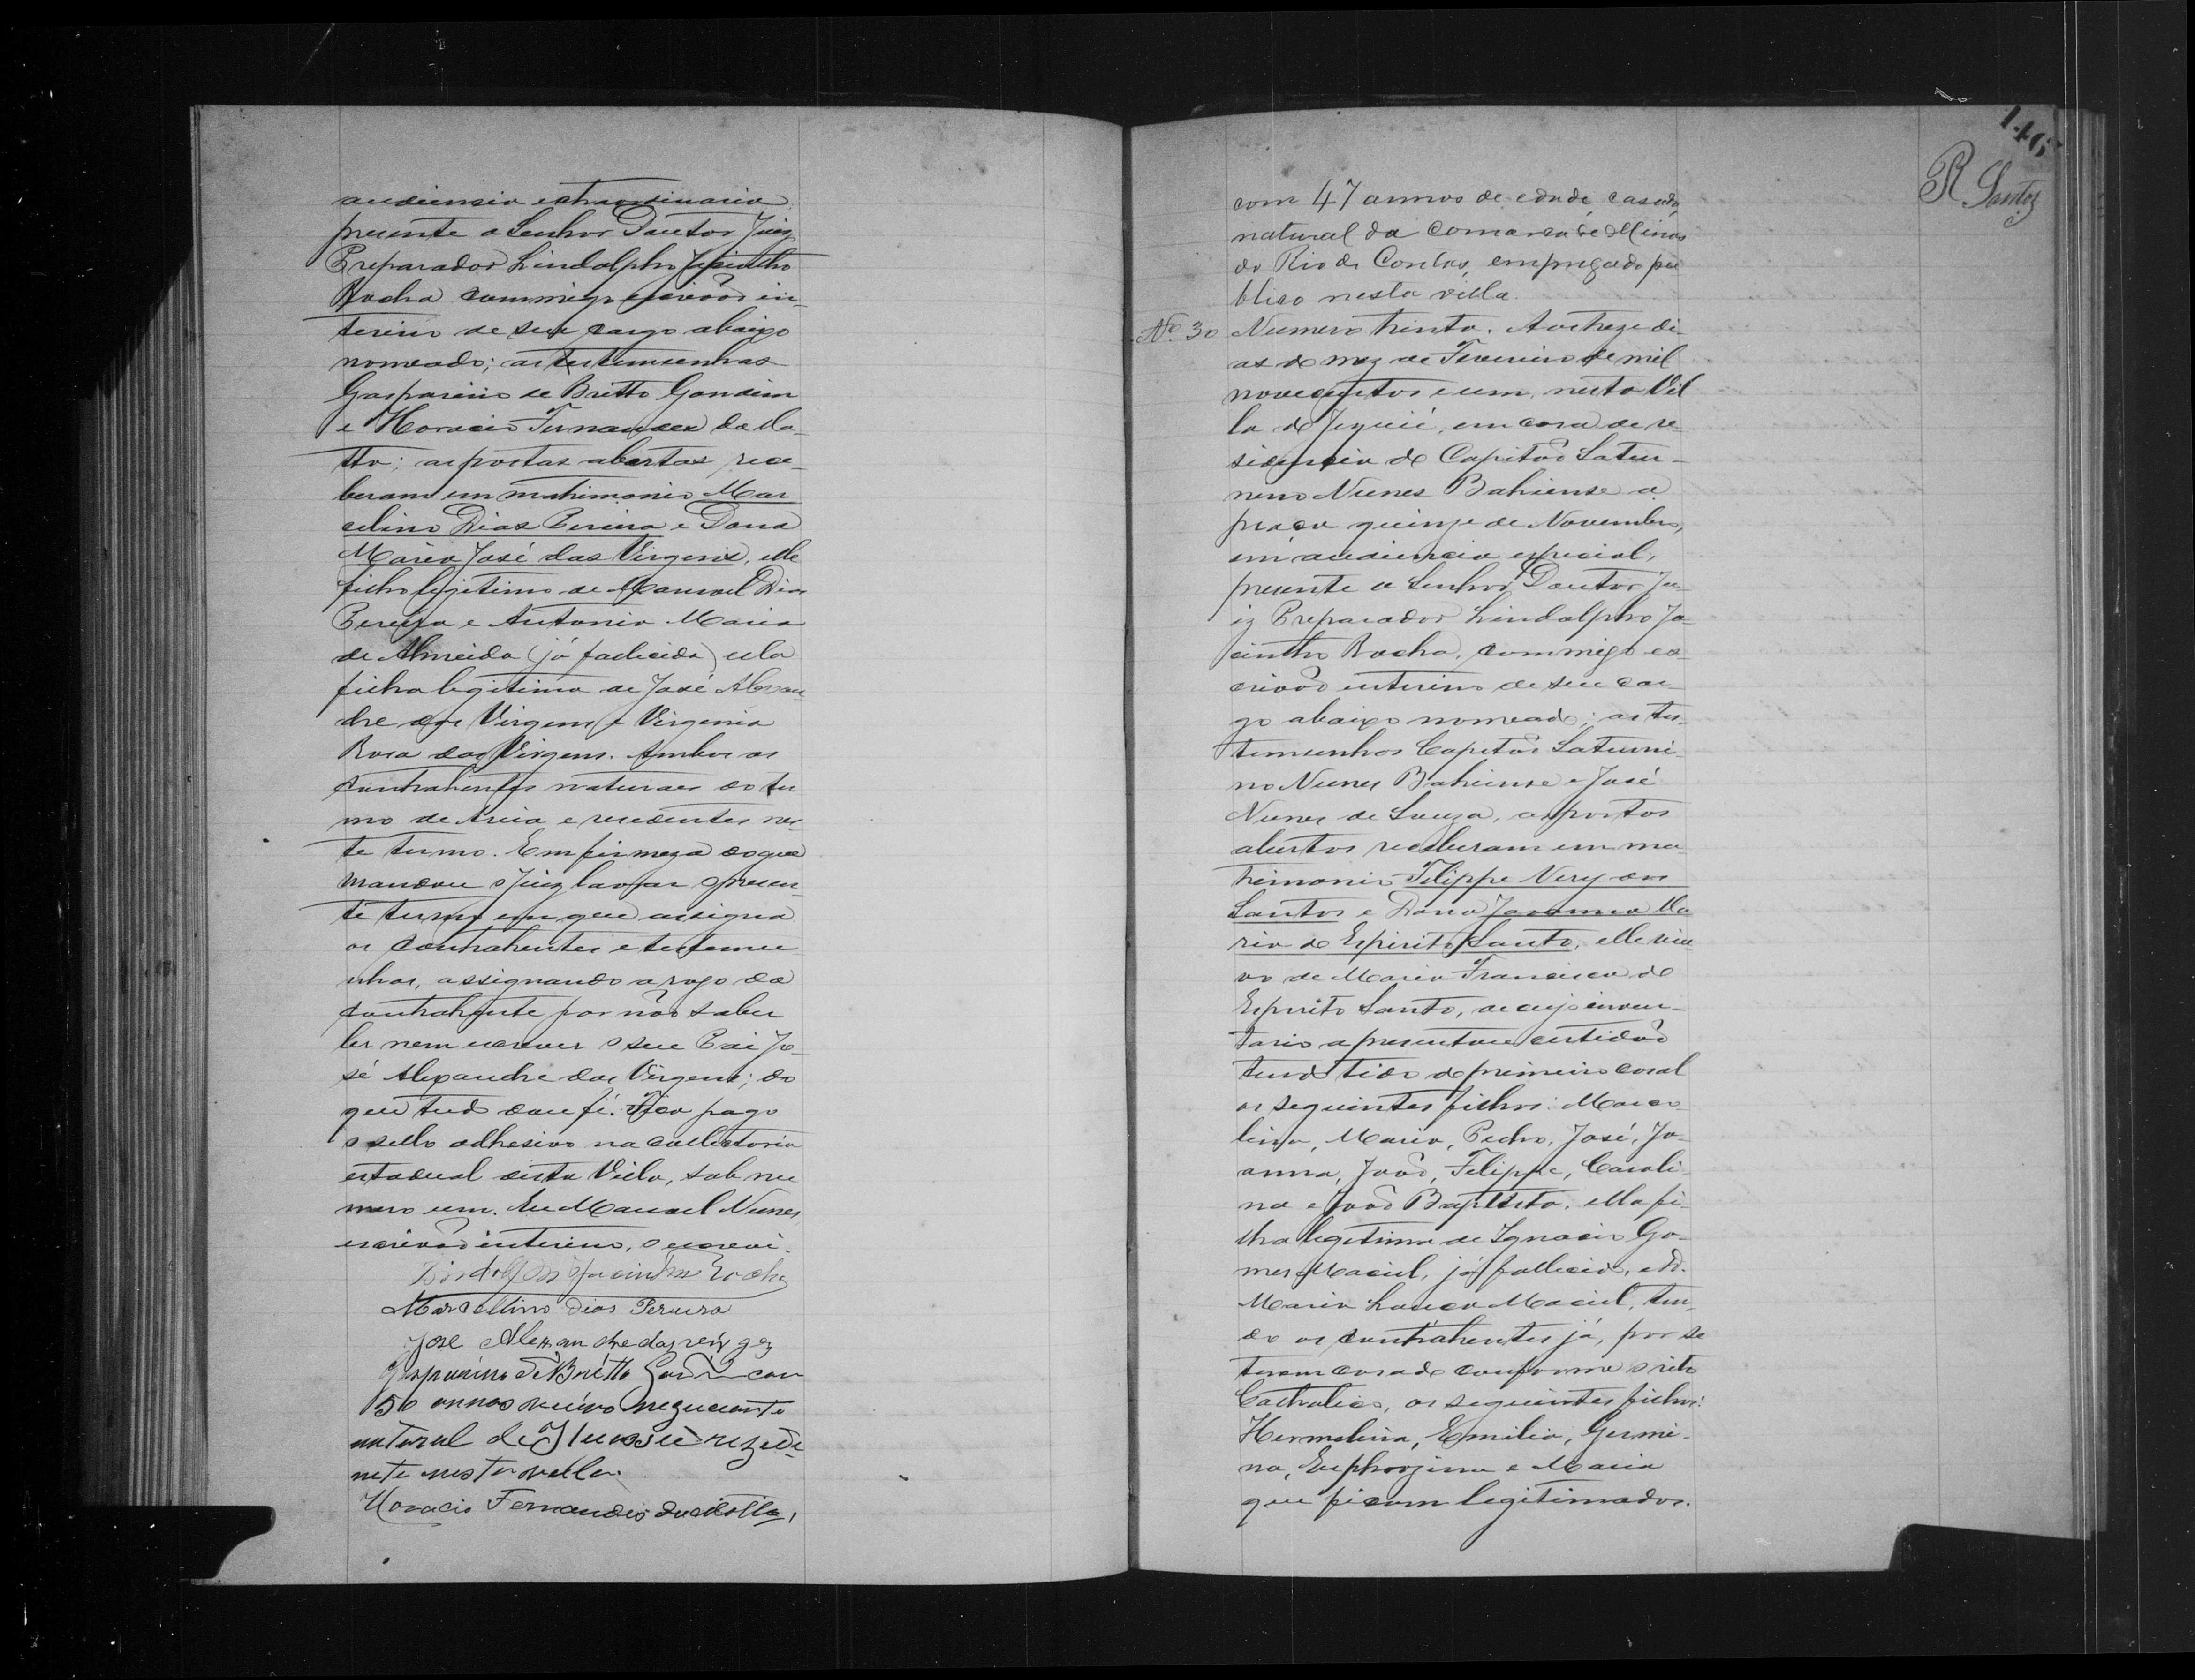 audiencia extraordinaria
presente o Senhor Doutor Juiz
Preparador Lindolpho Jacintho
Rocha commigo escrivaõ in-
terino de seu cargo abaixo
nomeado; as testemunhas
Gasparino de Britto Gondim
e Horacio Fernandes da Ma-
tta; as portas abertas, rece-
beram em matrimonio Mar
celino Dias Pereira e Dona
Maria José das Virgens, elle
filho legitimo de Manoel Dias
Pereira e Antonia Maria
de Almeida (já fallecida) ella
filha legitima de José Alexan
dre das Virgens e Virginia
Rosa das Virgens. Ambos os
contrahentes naturaes do ter
mo de Areia e residentes nes-
te termo. Em firmeza do que
mandou o Juiz lavrar o presen-
te termo em que assigna
os contrahentes e testemu
nhas, assignando a rogo da
contrahente por naõ saber
ler nem escrever o seu Pai Jo-
sé Alexandre das Virgens; do
que tudo dou fé. Fica pago
o sello adhesivo na collectoria
estadual desta Villa, sob nu
mero um. Eu Manoel Nunes
escrivaõ interino, o escrevi.
Lindolpho Jacintho Rocha
Marcellino Dias Pereira
José Alexandre das virges
Gasparino de Britto Gondim com
50 annos viuvo neguciante
natural de rezide
nete nesta villa.
Horacio Fernandes da Motta,
146
R Santos
com 47 annos de edade, casado,
natural da Comarca de Minas
do Rio de Contas, empregado pu
blico nesta villa.
Nº 30 Numero trinta. Aos treze di-
as do mez de Fevereiro de mil
novecentos e um, nesta Vil
la de Jequié, em casa de re-
sidencia do Capitaõ Satur-
nino Nunes Bahiense a
praça quinze de Novembro,
em audiencia especial,
presente o Senhor Doutor Ju-
iz Preparador Lindolpho Ja-
cintho Rocha, commigo es-
crivaõ interino de seu car-
go abaixo nomeado; as tes-
temunhas Capitaõ Saturni-
no Nunes Bahiense e José
Nunes de Souza, as portas
abertas receberam em ma
trimonio Filippe Nery dos
Santos e Dona Joanna Ma
ria do Espirito Santo, elle viu-
vo de Maria Francisca do
Espirito Santo, de cujo inven-
tario apresentou certidaõ
tendo tido do primeiro casal
os seguintes filhos: Marco-
lina, Maria, Pedro, José, Jo-
anna, Joaõ, Filippe, Caroli-
na e Joaõ Baptista, ella fi-
lha legitima de Ignacio Go-
mes Maciel, já fallecido, e D.
Maria Maciel, ten-
do os contrahentes já, por se
terem casado conforme o rito
Catholico, os seguintes filhos:
Hermelina, Emilia, Germi-
na, Euphrozina e Maria
que ficam legitimados.